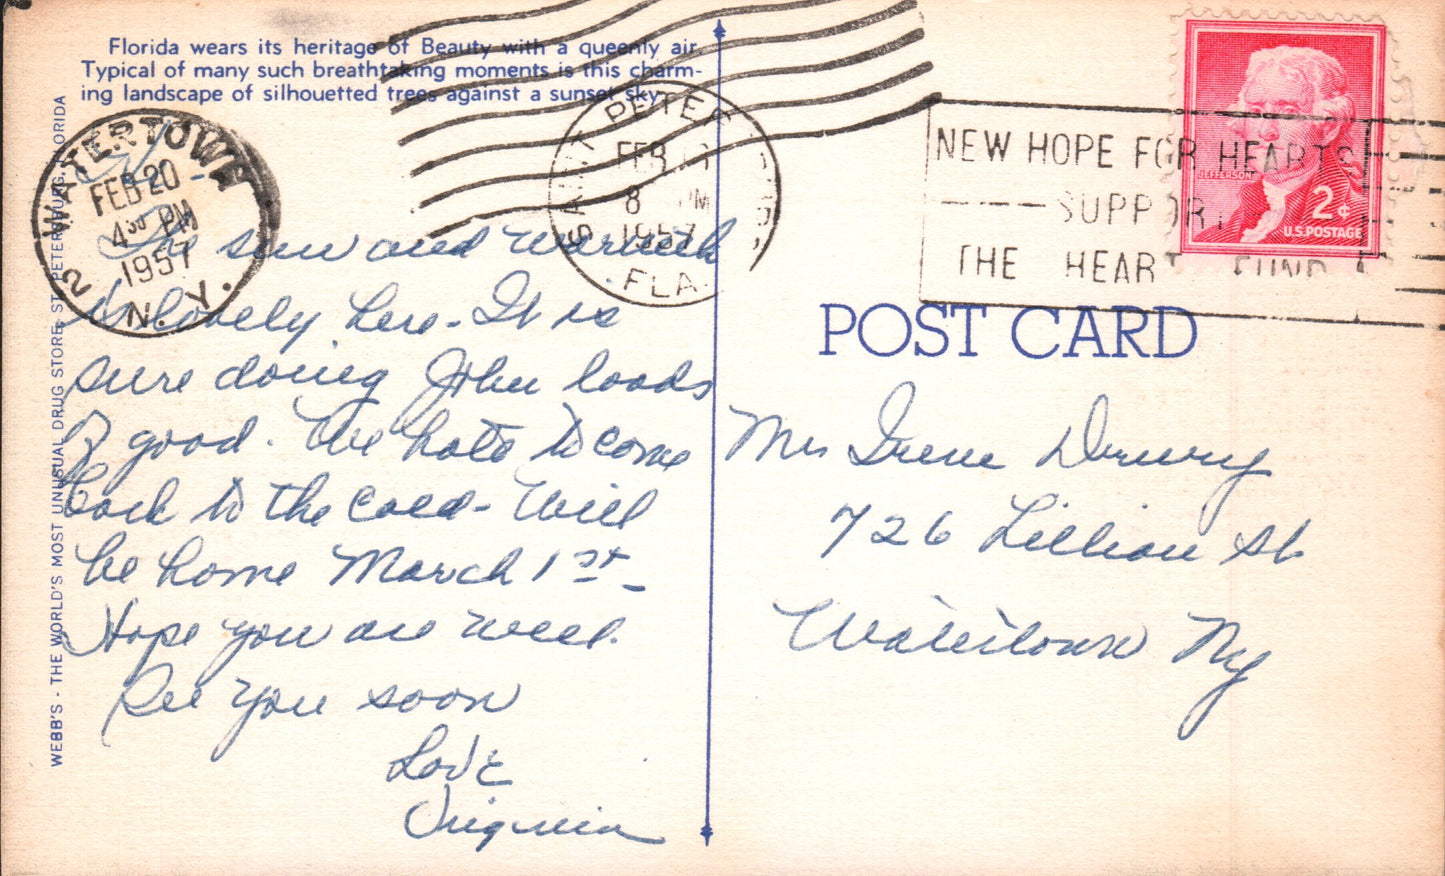 Florida wears its heritage of Beauty with a queenly air.
Typical of many such breathtaking moments is this charm-
ing landscape of silhouetted trees against a sunset sky.
WEBB'S - THE WORLD'S MOST UNUSUAL DRUG STORE, ST. PETERSBURG, FLORIDA
WATERTOWN
FEB 20
4 30 PM
1957
2 N.Y.
SAINT PETER
FEB
8 PM
1957
FLA.
NEW HOPE FOR HEARTS
SUPPORT
THE HEART FUND
JEFFERSON
2¢
U.S. POSTAGE
POST CARD
The sun and warmth
is lovely here - It is
sure doing John loads
of good. We hate to come
back to the cold - Will
be home March 1st -
Hope you are well.
See you soon
Love
Virginia
Mrs Irene Drury
726 Lillian St
Watertown Ny